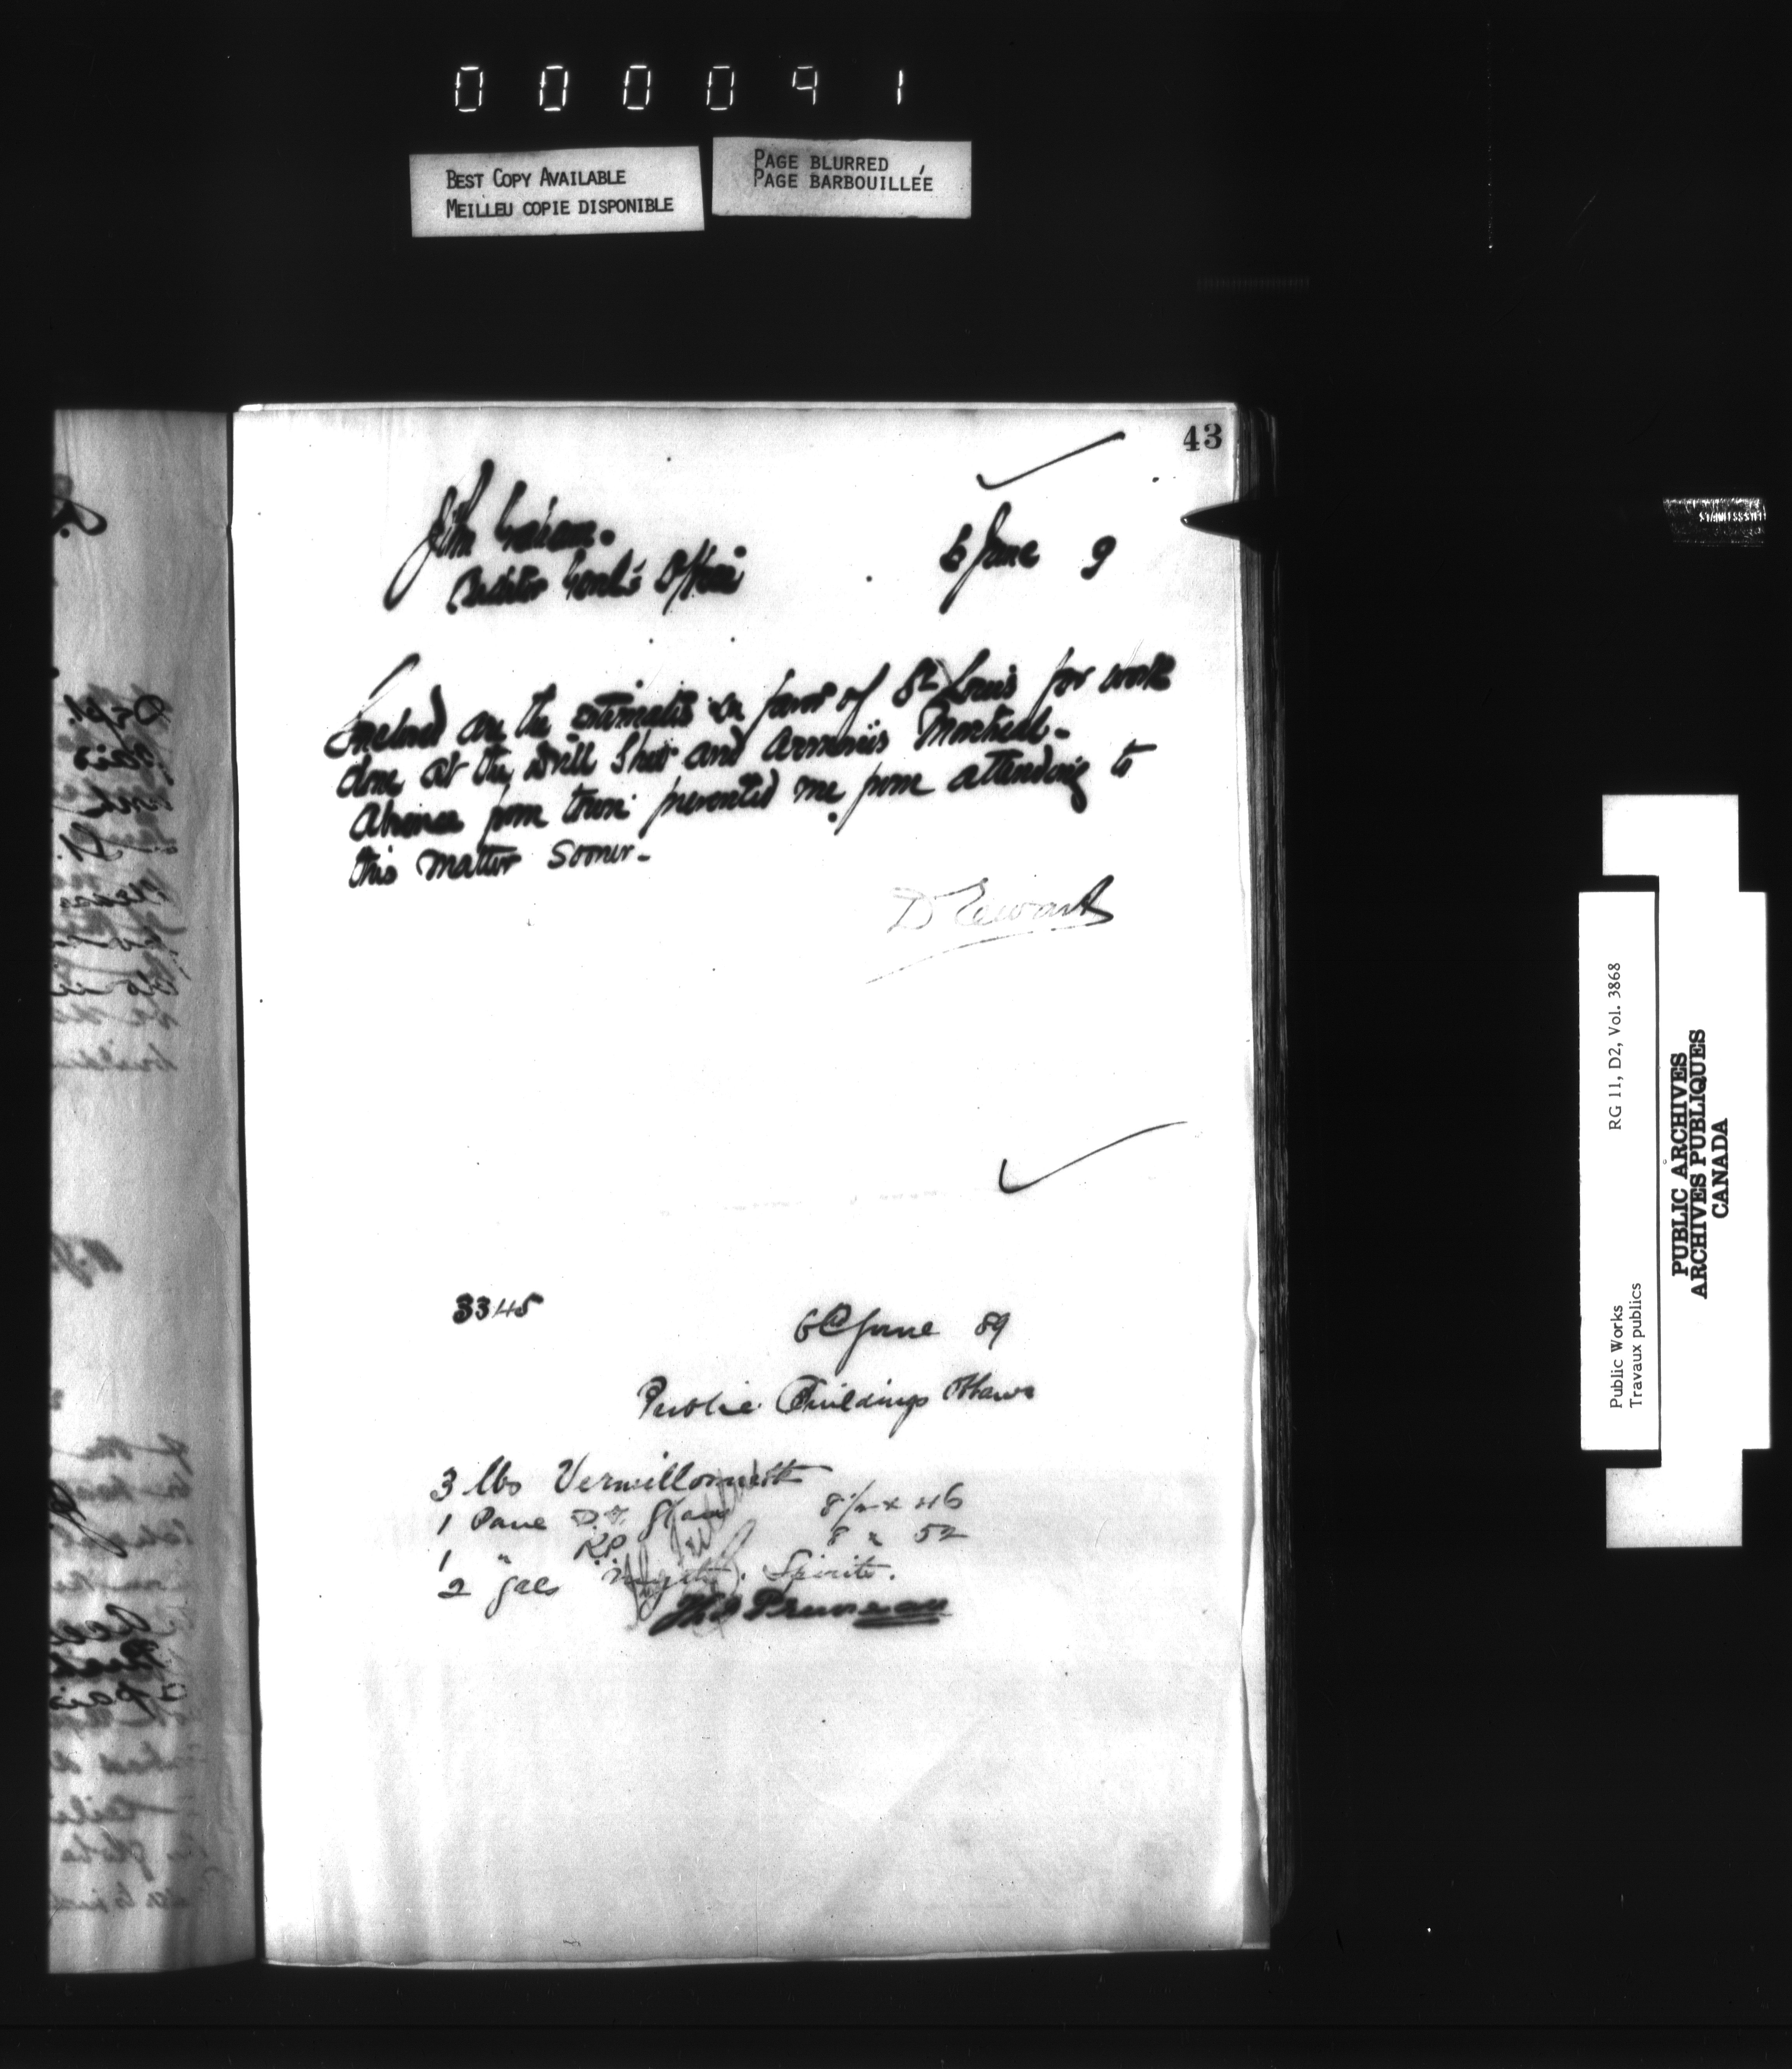 0 0 0 0 9 1
BEST COPY AVAILABLE
MEILLEU COPIE DISPONIBLE
PAGE BLURRED
PAGE BARBOUILLÉE
43
John
Auditor Genl's Office
6 June 9
Enclosed are the estimates in favor of St Louis for work
done at the Drill Shed and Armories Montreal -
Absence from town prevented me from attending to
this matter sooner -
D Ewart
3345
6 June 89
Public Buildings Ottawa
3 lbs
1 Pane D.D. Glass 8 1/2 x 46
1 " 8 x 52
2 gals Spirits.
Pruneau
STAINLESS STEEL
Public Works
Travaux publics
RG 11, D2, Vol. 3868
PUBLIC ARCHIVES
ARCHIVES PUBLIQUES
CANADA